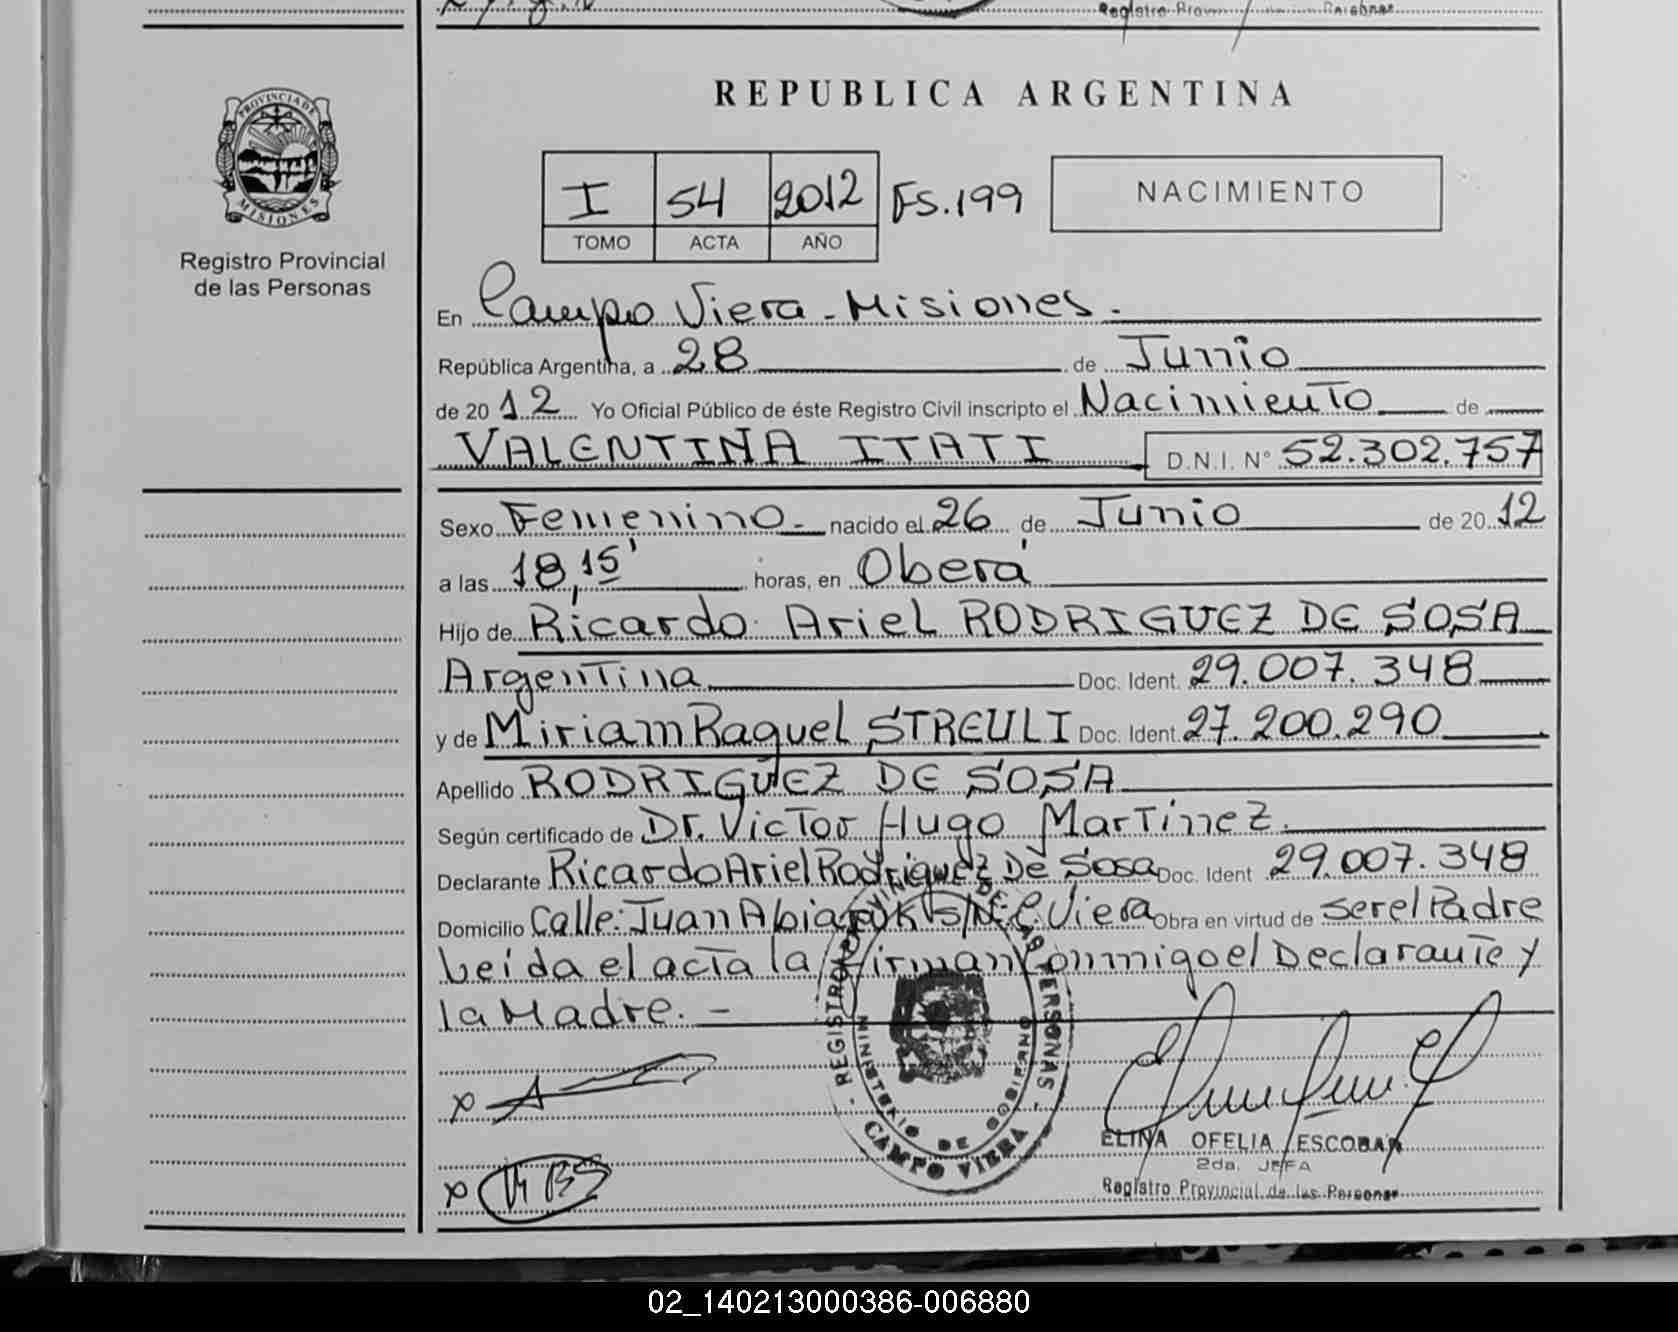 Registro Provincial de las Personas
REPUBLICA ARGENTINA
PROVINCIA DE
MISIONES
Registro Provincial
de las Personas
I 54 2012 Fs.199
TOMO ACTA AÑO
NACIMIENTO
En Campo Viera - Misiones.
República Argentina, a 28 de Junio
de 2012 Yo Oficial Público de éste Registro Civil inscripto el Nacimiento de
VALENTINA ITATI D.N.I. N° 52.302.757
Sexo Femenino - nacido el 26 de Junio de 2012
a las 18,15' horas, en Oberá
Hijo de Ricardo Ariel RODRIGUEZ DE SOSA
Argentina Doc. Ident. 29.007.348
y de Miriam Raquel STREULI Doc. Ident. 27.200.290
Apellido RODRIGUEZ DE SOSA
Según certificado de Dr. Victor Hugo Martinez.
Declarante Ricardo Ariel Rodriguez De Sosa Doc. Ident 29.007.348
Domicilio Calle: Juan S/N: C. Viera Obra en virtud de ser el Padre
Leida el acta la firman Conmigo el Declarante y
la Madre. -
REGISTRO PROVINCIAL DE LAS PERSONAS
MINISTERIO DE GOBIERNO
CAMPO VIERA
x
x
ELINA OFELIA ESCOBAR
2da. JEFA
Registro Provincial de las Personas
02_140213000386-006880